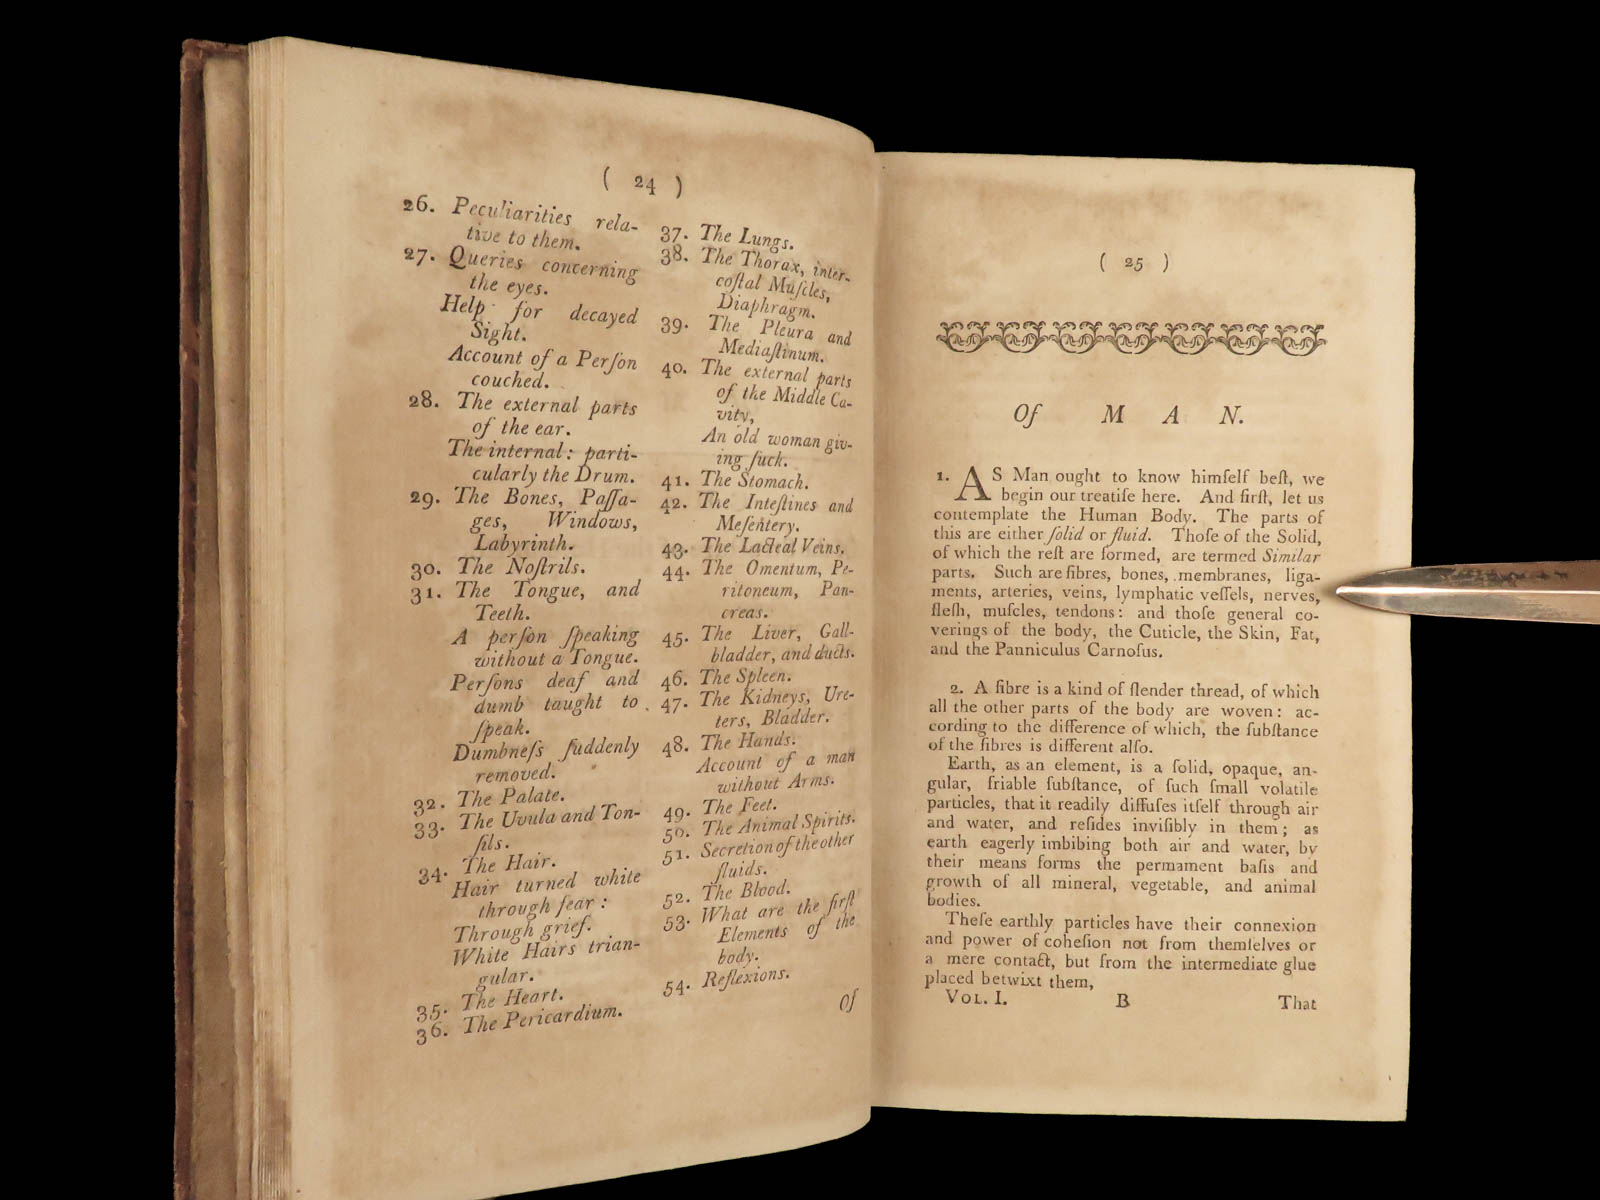 ( 24 )
26. Peculiarities rela-
tive to them.
27. Queries concerning
the eyes.
Help for decayed
Sight.
Account of a Perſon
couched.
28. The external parts
of the ear.
The internal: parti-
cularly the Drum.
29. The Bones, Paſſa-
ges, Windows,
Labyrinth.
30. The Noſtrils.
31. The Tongue, and
Teeth.
A perſon ſpeaking
without a Tongue.
Perſons deaf and
dumb taught to
ſpeak.
Dumbneſs ſuddenly
removed.
32. The Palate.
33. The Uvula and Ton-
ſils.
34. The Hair.
Hair turned white
through fear:
Through grief.
White Hairs trian-
gular.
35. The Heart.
36. The Pericardium.
37. The Lungs.
38. The Thorax, inter-
coſtal Muſcles,
Diaphragm.
39. The Pleura and
Mediaſtinum.
40. The external parts
of the Middle Ca-
vity,
An old woman giv-
ing ſuck.
41. The Stomach.
42. The Inteſtines and
Meſentery.
43. The Lacteal Veins.
44. The Omentum, Pe-
ritoneum, Pan-
creas.
45. The Liver, Gall-
bladder, and ducts.
46. The Spleen.
47. The Kidneys, Ure-
ters, Bladder.
48. The Hands.
Account of a man
without Arms.
49. The Feet.
50. The Animal Spirits.
51. Secretion of the other
fluids.
52. The Blood.
53. What are the firſt
Elements of the
body.
54. Reflexions.
Of
( 25 )
Of MAN.
1. AS Man ought to know himſelf beſt, we
begin our treatiſe here. And firſt, let us
contemplate the Human Body. The parts of
this are either ſolid or fluid. Thoſe of the Solid,
of which the reſt are formed, are termed Similar
parts. Such are fibres, bones, membranes, liga-
ments, arteries, veins, lymphatic veſſels, nerves,
fleſh, muſcles, tendons: and thoſe general co-
verings of the body, the Cuticle, the Skin, Fat,
and the Panniculus Carnoſus.
2. A fibre is a kind of ſlender thread, of which
all the other parts of the body are woven: ac-
cording to the difference of which, the ſubſtance
of the fibres is different alſo.
Earth, as an element, is a ſolid, opaque, an-
gular, friable ſubſtance, of ſuch ſmall volatile
particles, that it readily diffuſes itſelf through air
and water, and reſides inviſibly in them; as
earth eagerly imbibing both air and water, by
their means forms the permament baſis and
growth of all mineral, vegetable, and animal
bodies.
Theſe earthly particles have their connexion
and power of coheſion not from themſelves or
a mere contact, but from the intermediate glue
placed betwixt them,
VOL. I. B That